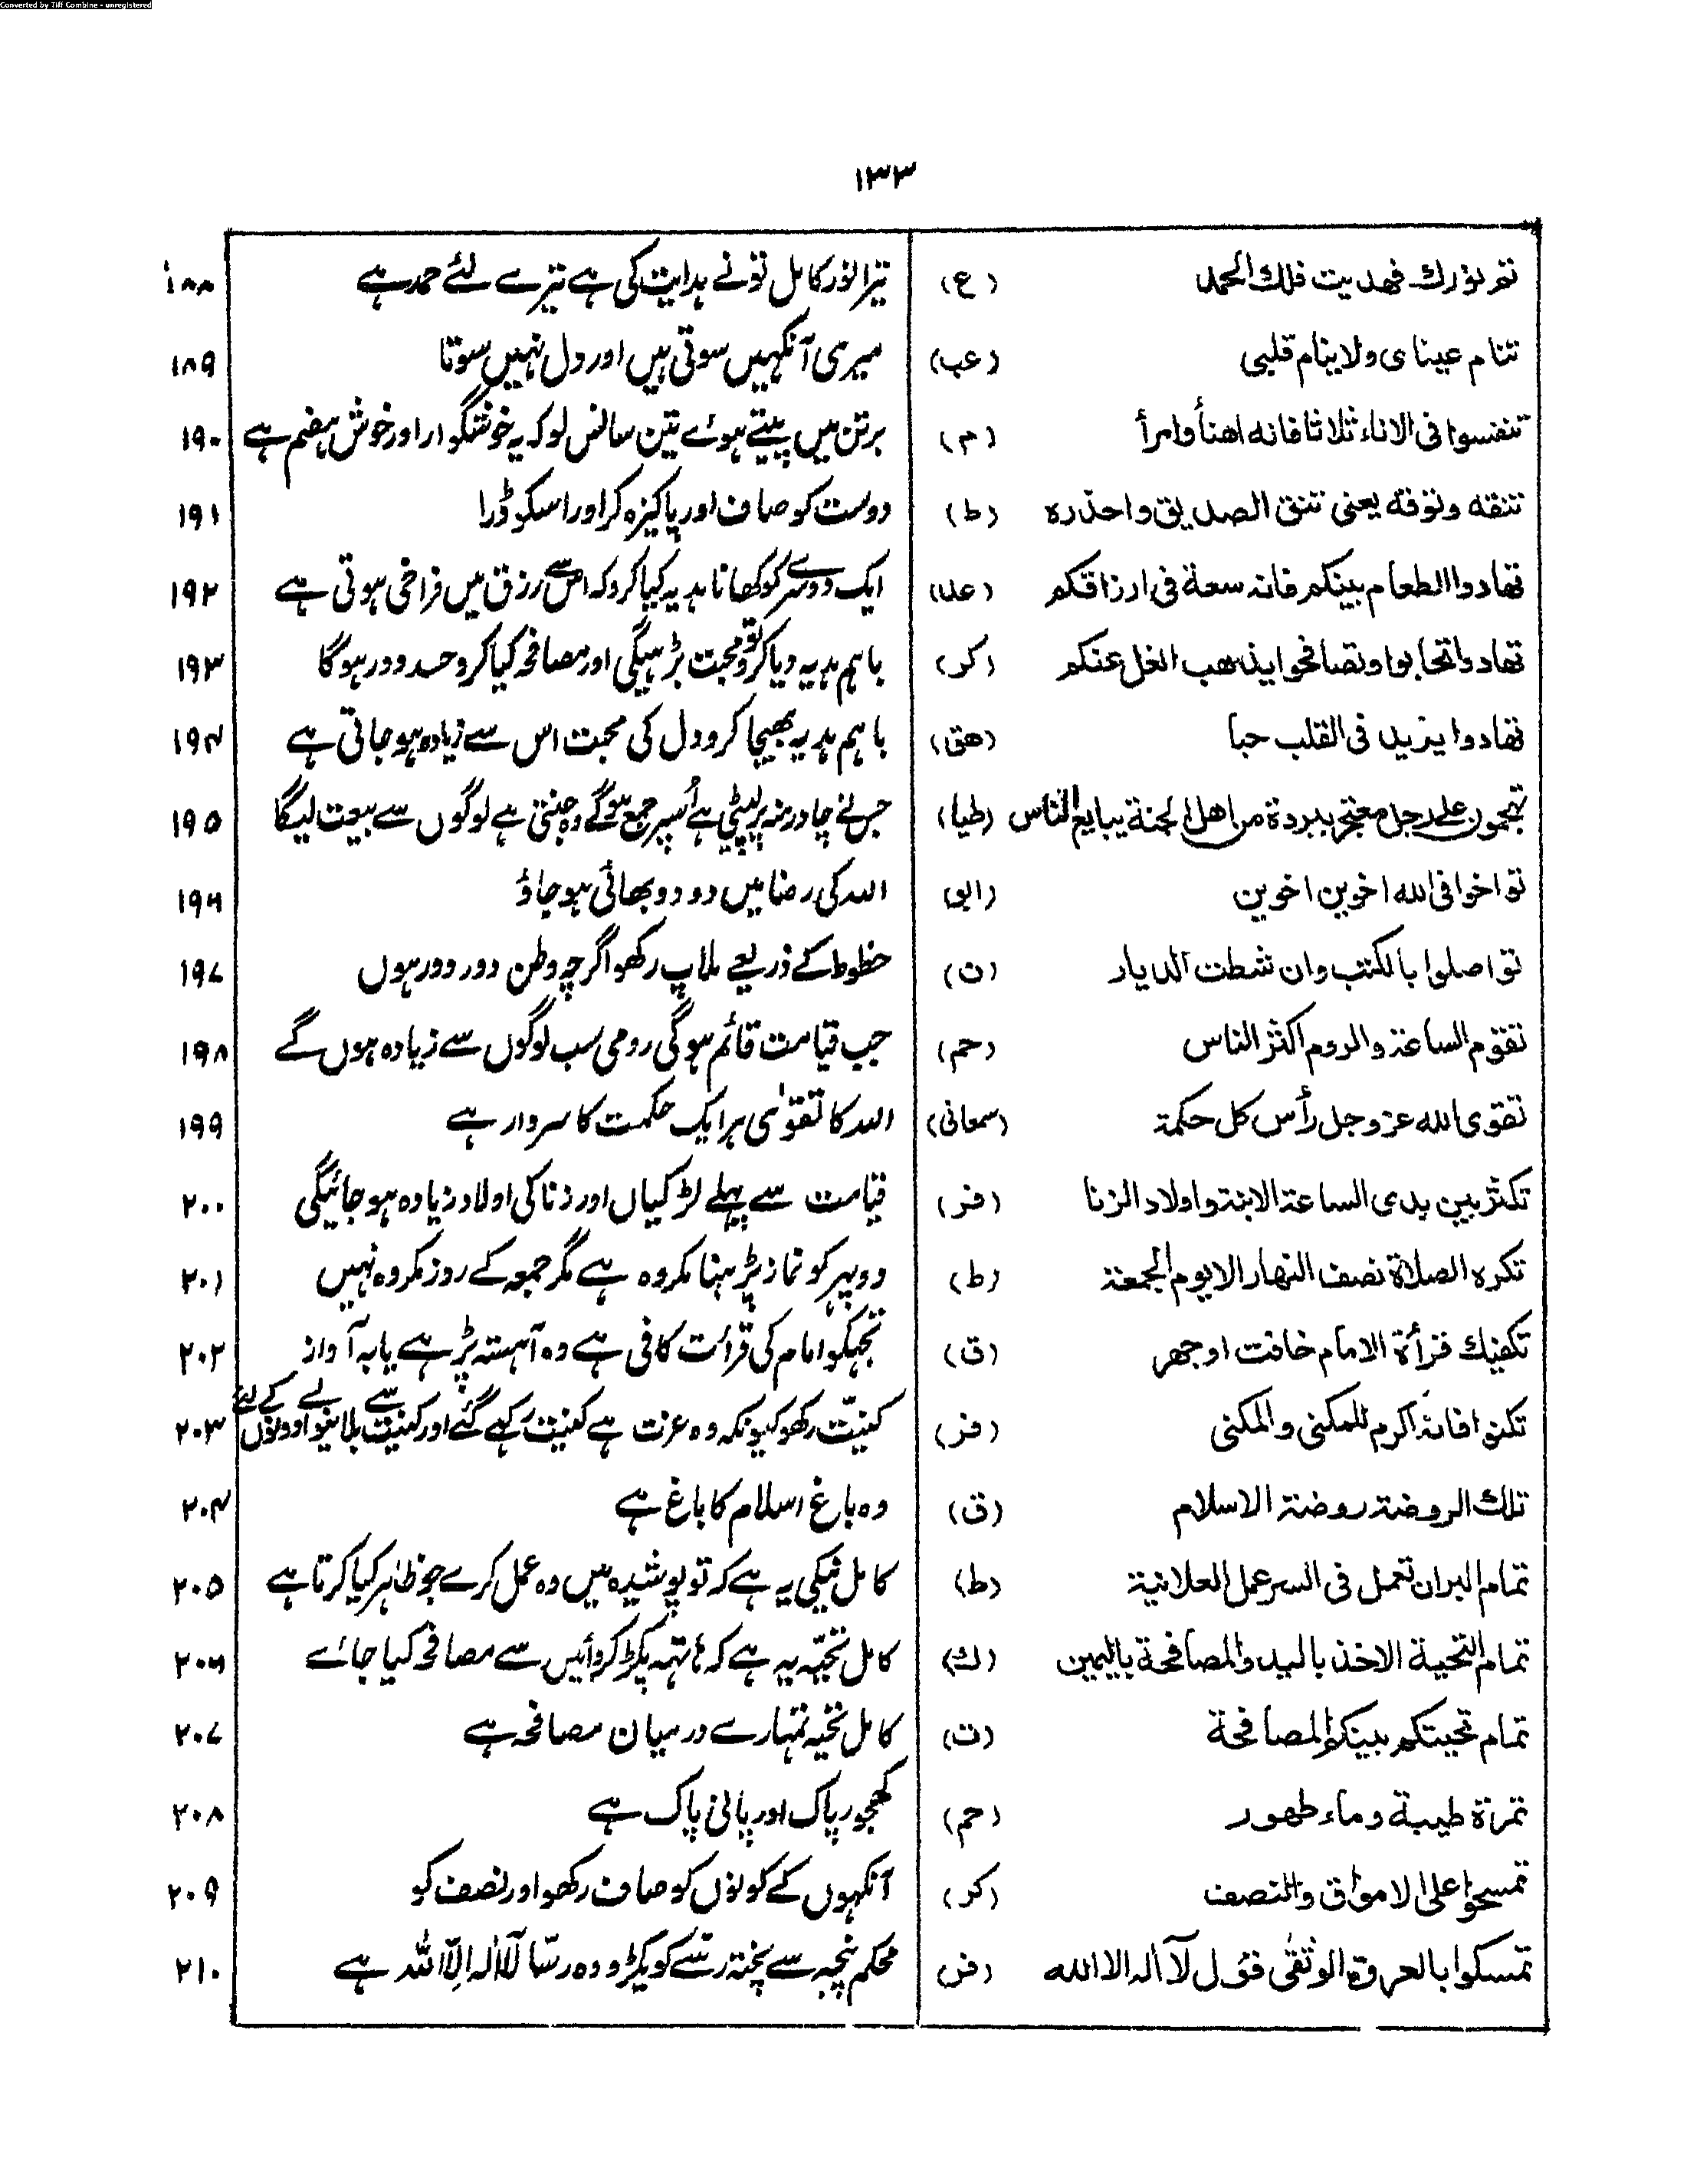 Converted by Tiff Combine - unregistered
۱۳۳
تم نورك فهديت فلك الحمد (ع) تیرا نور کامل تو نے ہدایت کی ہے تیرے لئے حمد ہے ۱۸۸
تنام عيناى ولا ينام قلبى (عب) میری آنکہیں سوتی ہیں اور دل نہیں سوتا ۱۸۹
تنفسوا فى الاناء ثلاثا فانه اهنأ وامرأ (م) برتن میں پیتے ہوئے تین سانس لو کہ یہ خوشگوار اور خوش ہضم ہے ۱۹۰
تنقه وتوقه يعنى تنق الصديق واحذره (ط) دوست کو صاف اور پاکیزہ کر اور اسکو ڈرا ۱۹۱
تهادوا الطعام بينكم فانه سعة فى ارزاقكم (عد) ایک دوسرے کو کھانا ہدیہ کیا کرو کہ اس سے رزق میں فراخی ہوتی ہے ۱۹۲
تهادوا تحابوا وتصافحوا يذهب الغل عنكم (كر) باہم ہدیہ دیا کرو تو محبت بڑہیگی اور مصافحہ کیا کرو حسد دور ہوگا ۱۹۳
تهادوا يزيد فى القلب حبا (هق) باہم ہدیہ بھیجا کرو دل کی محبت اس سے زیادہ ہو جاتی ہے ۱۹۴
تهجمون على رجل معتجر ببردة من اهل الجنة يبايع الناس (طيا) جس نے چادر منہ پر لپیٹی ہے اُسپر جمع ہوگے وہ جنتی ہے لوگوں سے بیعت لیگا ۱۹۵
تواخوا فى الله اخوين اخوين (ابو) اللہ کی رضا میں دو دو بھائی ہو جاؤ ۱۹۶
تواصلوا بالكتب وان شطت الديار (ن) خطوط کے ذریعے ملاپ رکھو اگرچہ وطن دور دور ہوں ۱۹۷
تقوم الساعة والروم اكثر الناس (حم) جب قیامت قائم ہوگی رومی سب لوگوں سے زیادہ ہوں گے ۱۹۸
تقوى الله عز وجل رأس كل حكمة (سمعانى) اللہ کا تقوٰی ہر ایک حکمت کا سردار ہے ۱۹۹
تكثر بين يدى الساعة الابنة و اولاد الزنا (فر) قیامت سے پہلے لڑکیاں اور زنا کی اولاد زیادہ ہو جائیگی ۲۰۰
تكره الصلاة نصف النهار الا يوم الجمعة (ط) دوپہر کو نماز پڑہنا مکروہ ہے مگر جمعہ کے روز مکروہ نہیں ۲۰۱
تكفيك قرأة الامام خافت او جهر (ق) تجہکو امام کی قرأت کافی ہے وہ آہستہ پڑہے یا بہ آواز ۲۰۲
تكنوا فانه اكرم للمكنى والمكنى (فر) کنیّت رکھو کیونکہ وہ عزت ہے کنیت رکہے گئے اور کنیت سے بلانیوالے دونوں کے لئے ۲۰۳
تلك الروضة روضة الاسلام (ق) وہ باغ اسلام کا باغ ہے ۲۰۴
تمام البر ان تعمل فى السر عمل العلانية (ط) کامل نیکی یہ ہے کہ تو پوشیدہ میں وہ عمل کرے جو ظاہر کیا کرتا ہے ۲۰۵
تمام التحية الاخذ باليد والمصافحة باليمين (ك) کامل تحیّہ یہ ہے کہ ہاتہہ پکڑ کر دائیں سے مصافحہ کیا جائے ۲۰۶
تمام تحيتكم بينكم المصافحة (ت) کامل تحیہ تمہارے درمیان مصافحہ ہے ۲۰۷
تمرة طيبة وماء طهور (حم) کھجور پاک اور پانی پاک ہے ۲۰۸
تمسحوا على الامواق والنصف (كر) آنکہوں کے کونوں کو صاف رکھو اور نصف کو ۲۰۹
تمسكوا بالعروة الوثقى قول لآ اله الا الله (فر) محکم پنجہ سے پختہ رسّے کو پکڑو وہ رسّا لآ الٰہ الّا اللہ ہے ۲۱۰